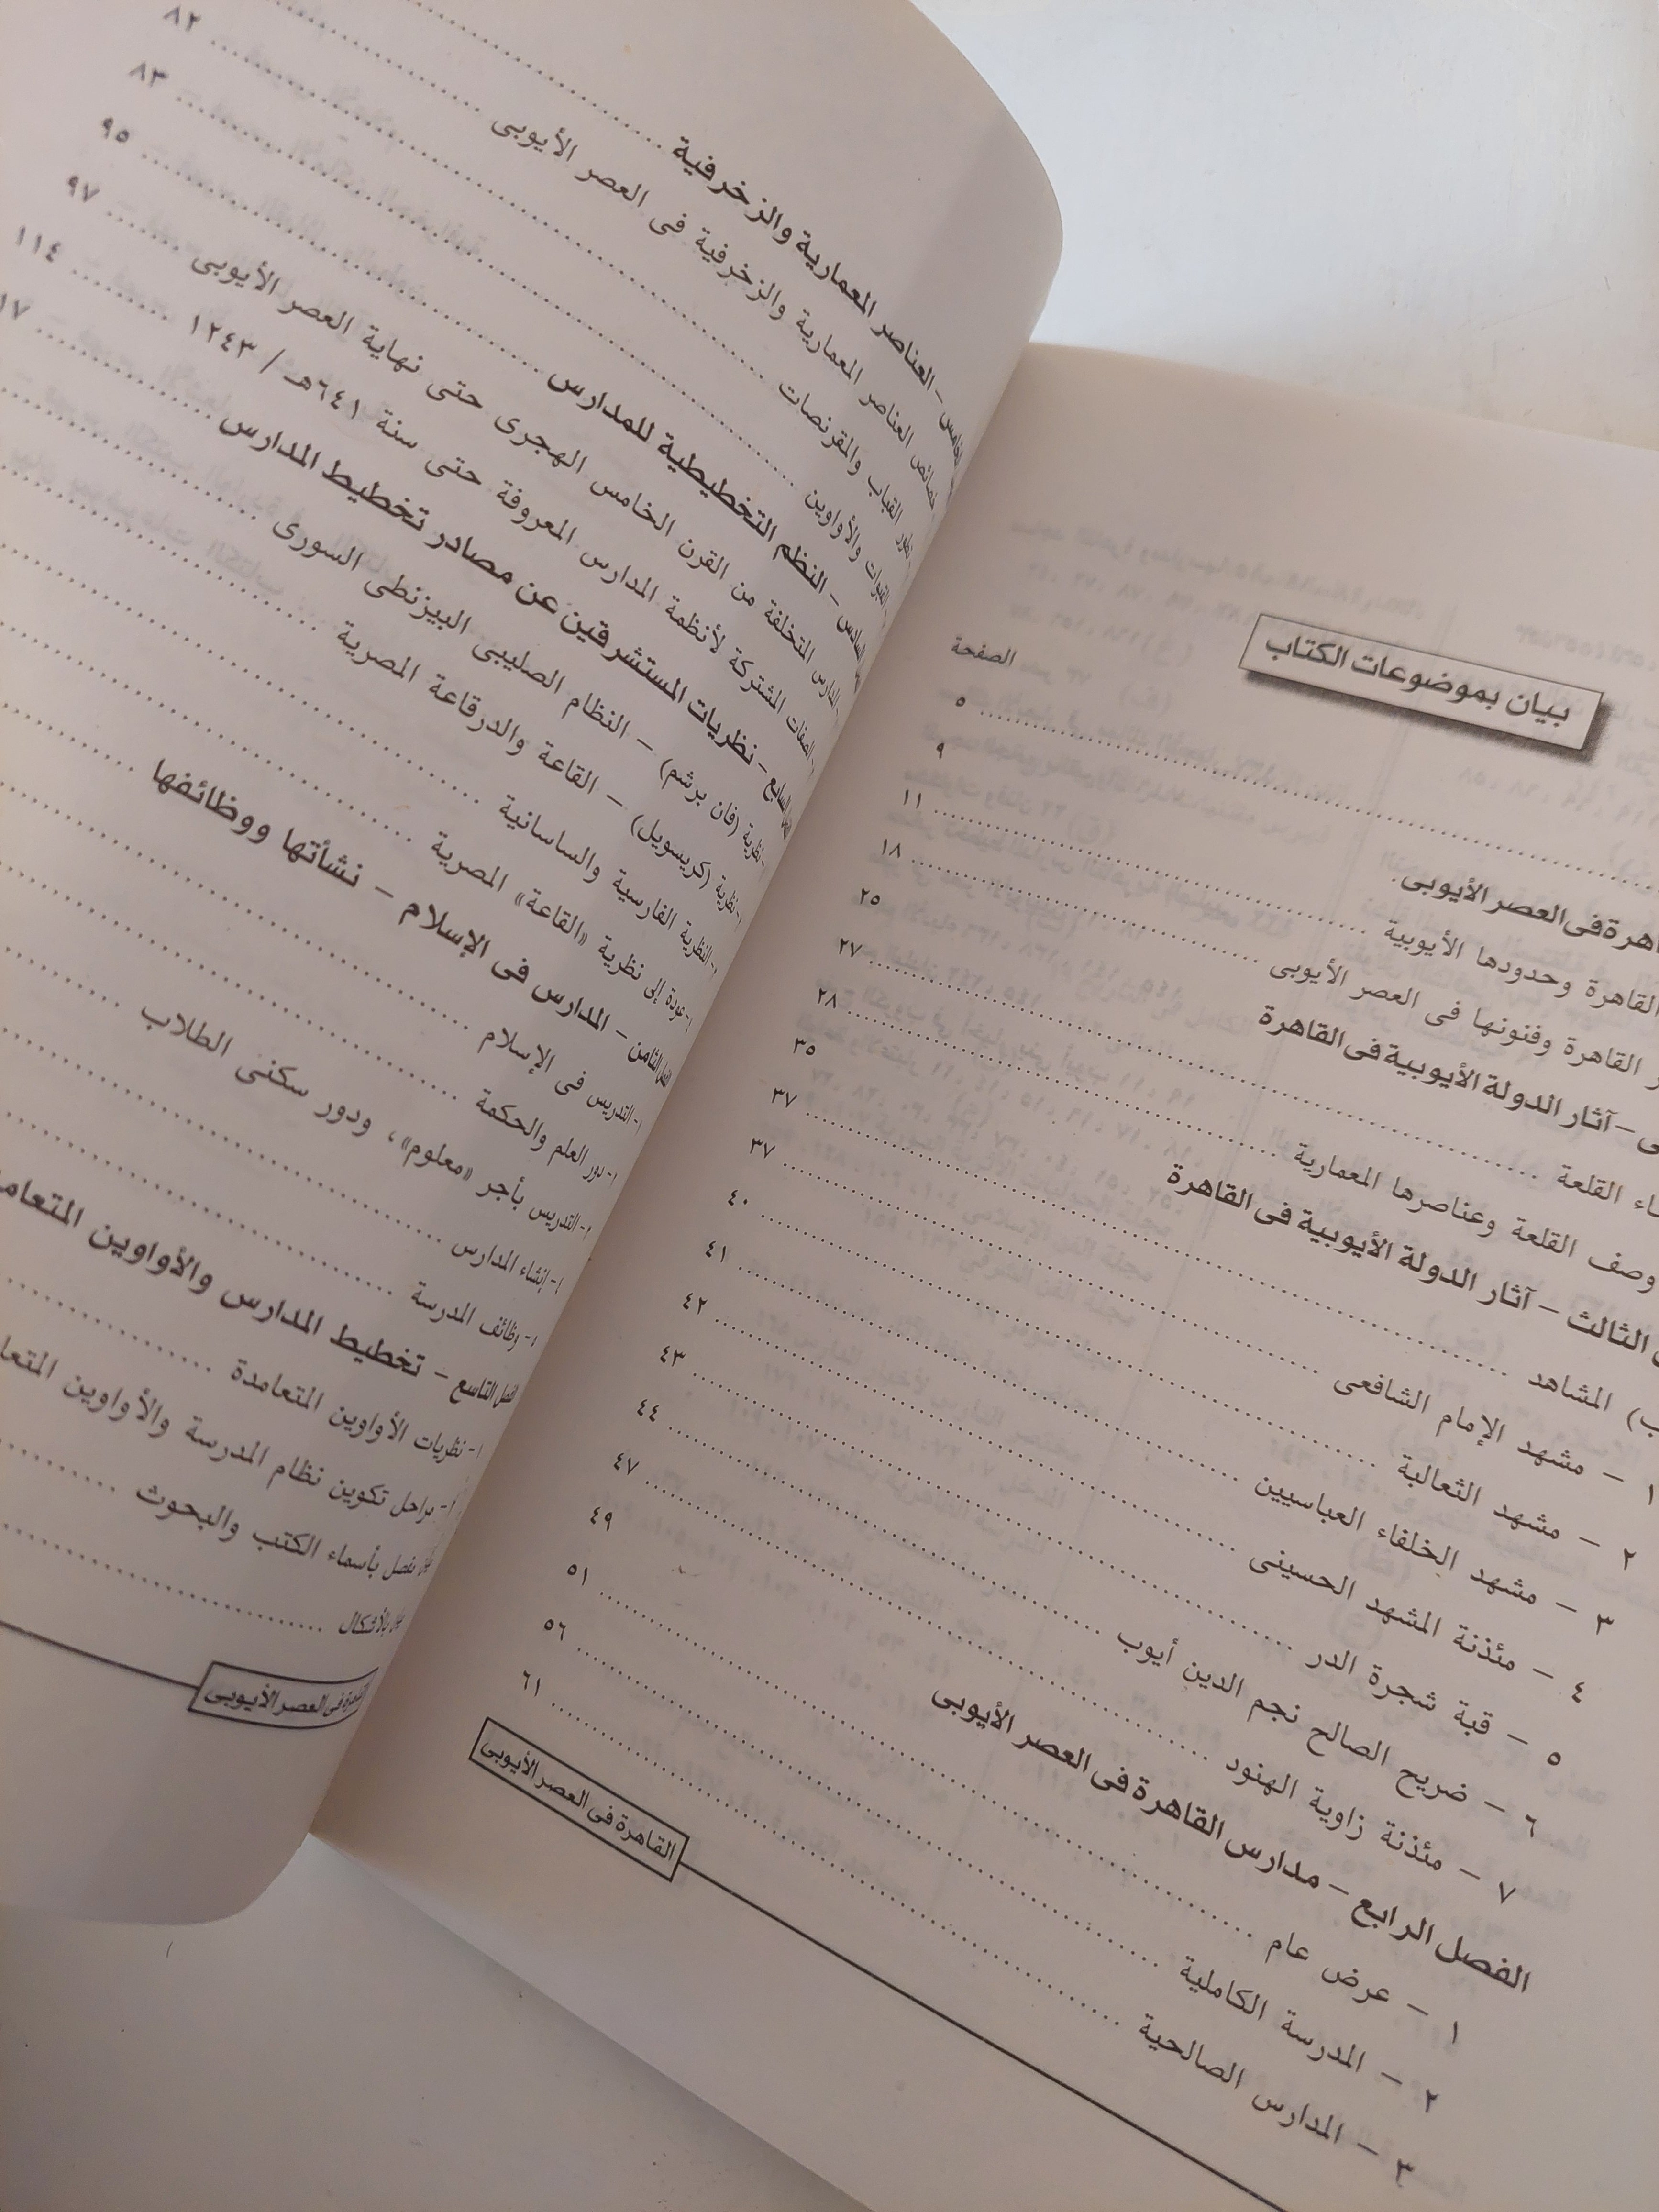 بيان بموضوعات الكتاب
الصفحة
٥
فى العصر الأيوبى ٩
القاهرة وحدودها الأيوبية ١١
القاهرة وفنونها فى العصر الأيوبى ١٨
– آثار الدولة الأيوبية فى القاهرة ٢٥
القلعة ٢٧
وصف القلعة وعناصرها المعمارية ٢٨
الثالث – آثار الدولة الأيوبية فى القاهرة ٣٥
ب) المشاهد ٣٧
١ – مشهد الإمام الشافعى ٣٧
٢ – مشهد الثعالبة ٤٠
٣ – مشهد الخلفاء العباسيين ٤١
٤ – مئذنة المشهد الحسينى ٤٢
٥ – قبة شجرة الدر ٤٣
٦ – ضريح الصالح نجم الدين أيوب ٤٤
٧ – مئذنة زاوية الهنود ٤٧
الفصل الرابع – مدارس القاهرة فى العصر الأيوبى ٤٩
١ – عرض عام ٥١
٢ – المدرسة الكاملية ٥٦
٣ – المدارس الصالحية ٦١
القاهرة فى العصر الأيوبى
– العناصر المعمارية والزخرفية
خصائص العناصر المعمارية والزخرفية فى العصر الأيوبى ٨٢
تطور القباب والمقرنصات ٨٣
القبوات والأواوين ٩٥
السادس – النظم التخطيطية للمدارس ٩٧
المدارس المتخلفة من القرن الخامس الهجرى حتى نهاية العصر الأيوبى
الصفات المشتركة لأنظمة المدارس المعروفة حتى سنة ٦٤١هـ / ١٢٤٣ ١١٤
السابع – نظريات المستشرقين عن مصادر تخطيط المدارس
نظرية (فان برشم) – النظام الصليبى البيزنطى السورى
نظرية (كريسويل) – القاعة والدرقاعة المصرية
النظرية الفارسية والساسانية
عودة إلى نظرية «القاعة» المصرية
الفصل الثامن – المدارس فى الإسلام – نشأتها ووظائفها
التدريس فى الإسلام
دور العلم والحكمة
التدريس بأجر «معلوم»، ودور سكنى الطلاب
إنشاء المدارس
وظائف المدرسة
الفصل التاسع – تخطيط المدارس والأواوين
نظريات الأواوين المتعامدة
مراحل تكوين نظام المدرسة والأواوين
مفصل بأسماء الكتب والبحوث
بالأشكال
فى العصر الأيوبى